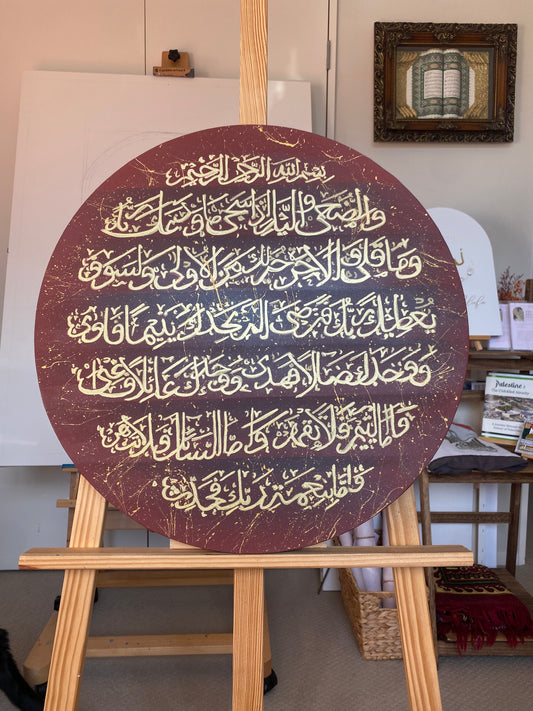 بسم الله الرحمن الرحيم
والضحى والليل إذا سجى ما ودعك ربك
وما قلى وللآخرة خير لك من الأولى ولسوف
يعطيك ربك فترضى ألم يجدك يتيما فآوى
ووجدك ضالا فهدى ووجدك عائلا فأغنى
فأما اليتيم فلا تقهر وأما السائل فلا تنهر
وأما بنعمة ربك فحدث
Palestine